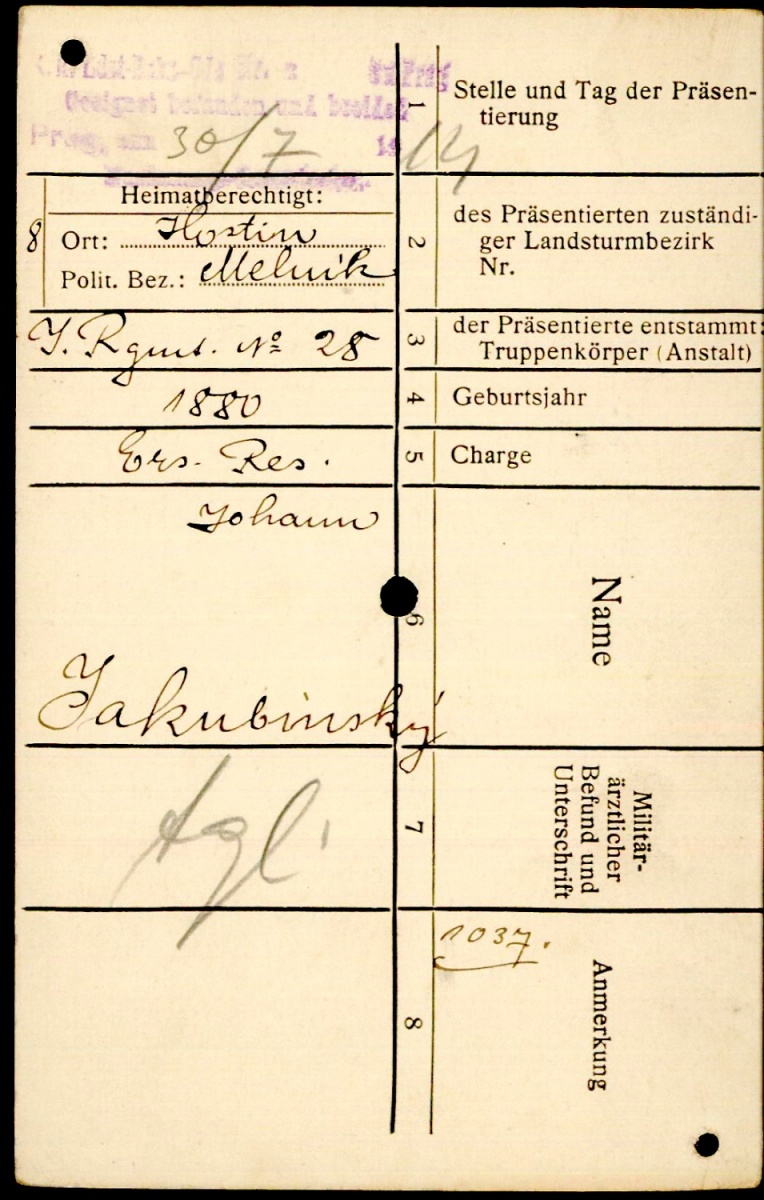 Geeignet befunden und beeidet
Prag, am 30/7 1914
1
Stelle und Tag der Präsen-
tierung
Heimatberechtigt:
8
Ort: Hostin
Polit. Bez.: Melnik
2
des Präsentierten zuständi-
ger Landsturmbezirk
Nr.
J. Rgmt. No 28
3
der Präsentierte entstammt:
Truppenkörper (Anstalt)
1880
4
Geburtsjahr
Ers. Res.
5
Charge
Johann
Jakubinský
6
Name
tgl.
7
Militär-
ärztlicher
Befund und
Unterschrift
8
1037.
Anmerkung